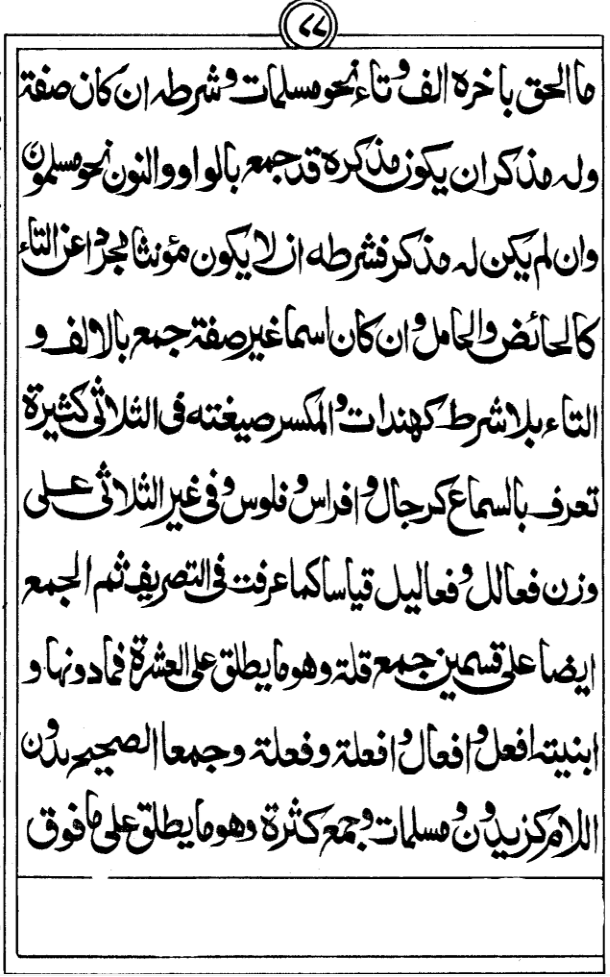 ٧٧
ما الحق باخره الف وتاء نحو مسلمات وشرطه ان كان صفة
وله مذكر ان يكون مذكره قد جمع بالواو والنون نحو مسلمون
وان لم يكن له مذكر فشرطه ان لا يكون مؤنثا مجردا عن التاء
كالحائض والحامل وان كان اسما غير صفة جمع بالالف و
التاء بلا شرط كهندات والمكسر صيغته فى الثلاثى كثيرة
تعرف بالسماع كرجال وافراس وفلوس وفى غير الثلاثى على
وزن فعالل وفعاليل قياسا كما عرفت فى التصريف ثم الجمع
ايضا على قسمين جمع قلة وهو ما يطلق على العشرة فما دونها و
ابنيته افعل وافعال وافعلة وفعلة وجمعا الصحيح بدون
اللام كزيدون ومسلمات وجمع كثرة وهو ما يطلق على ما فوق